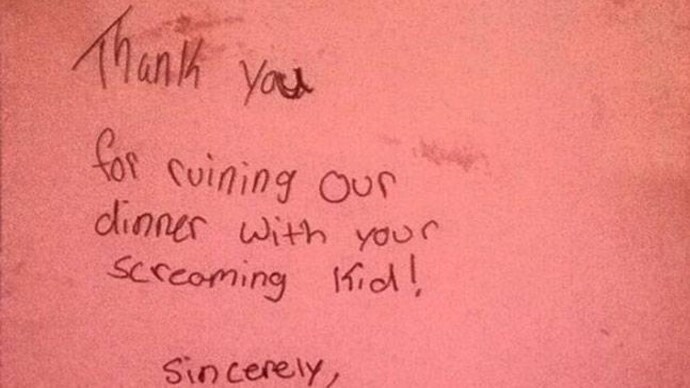 Thank you
for ruining our
dinner with your
screaming kid!
sincerely,